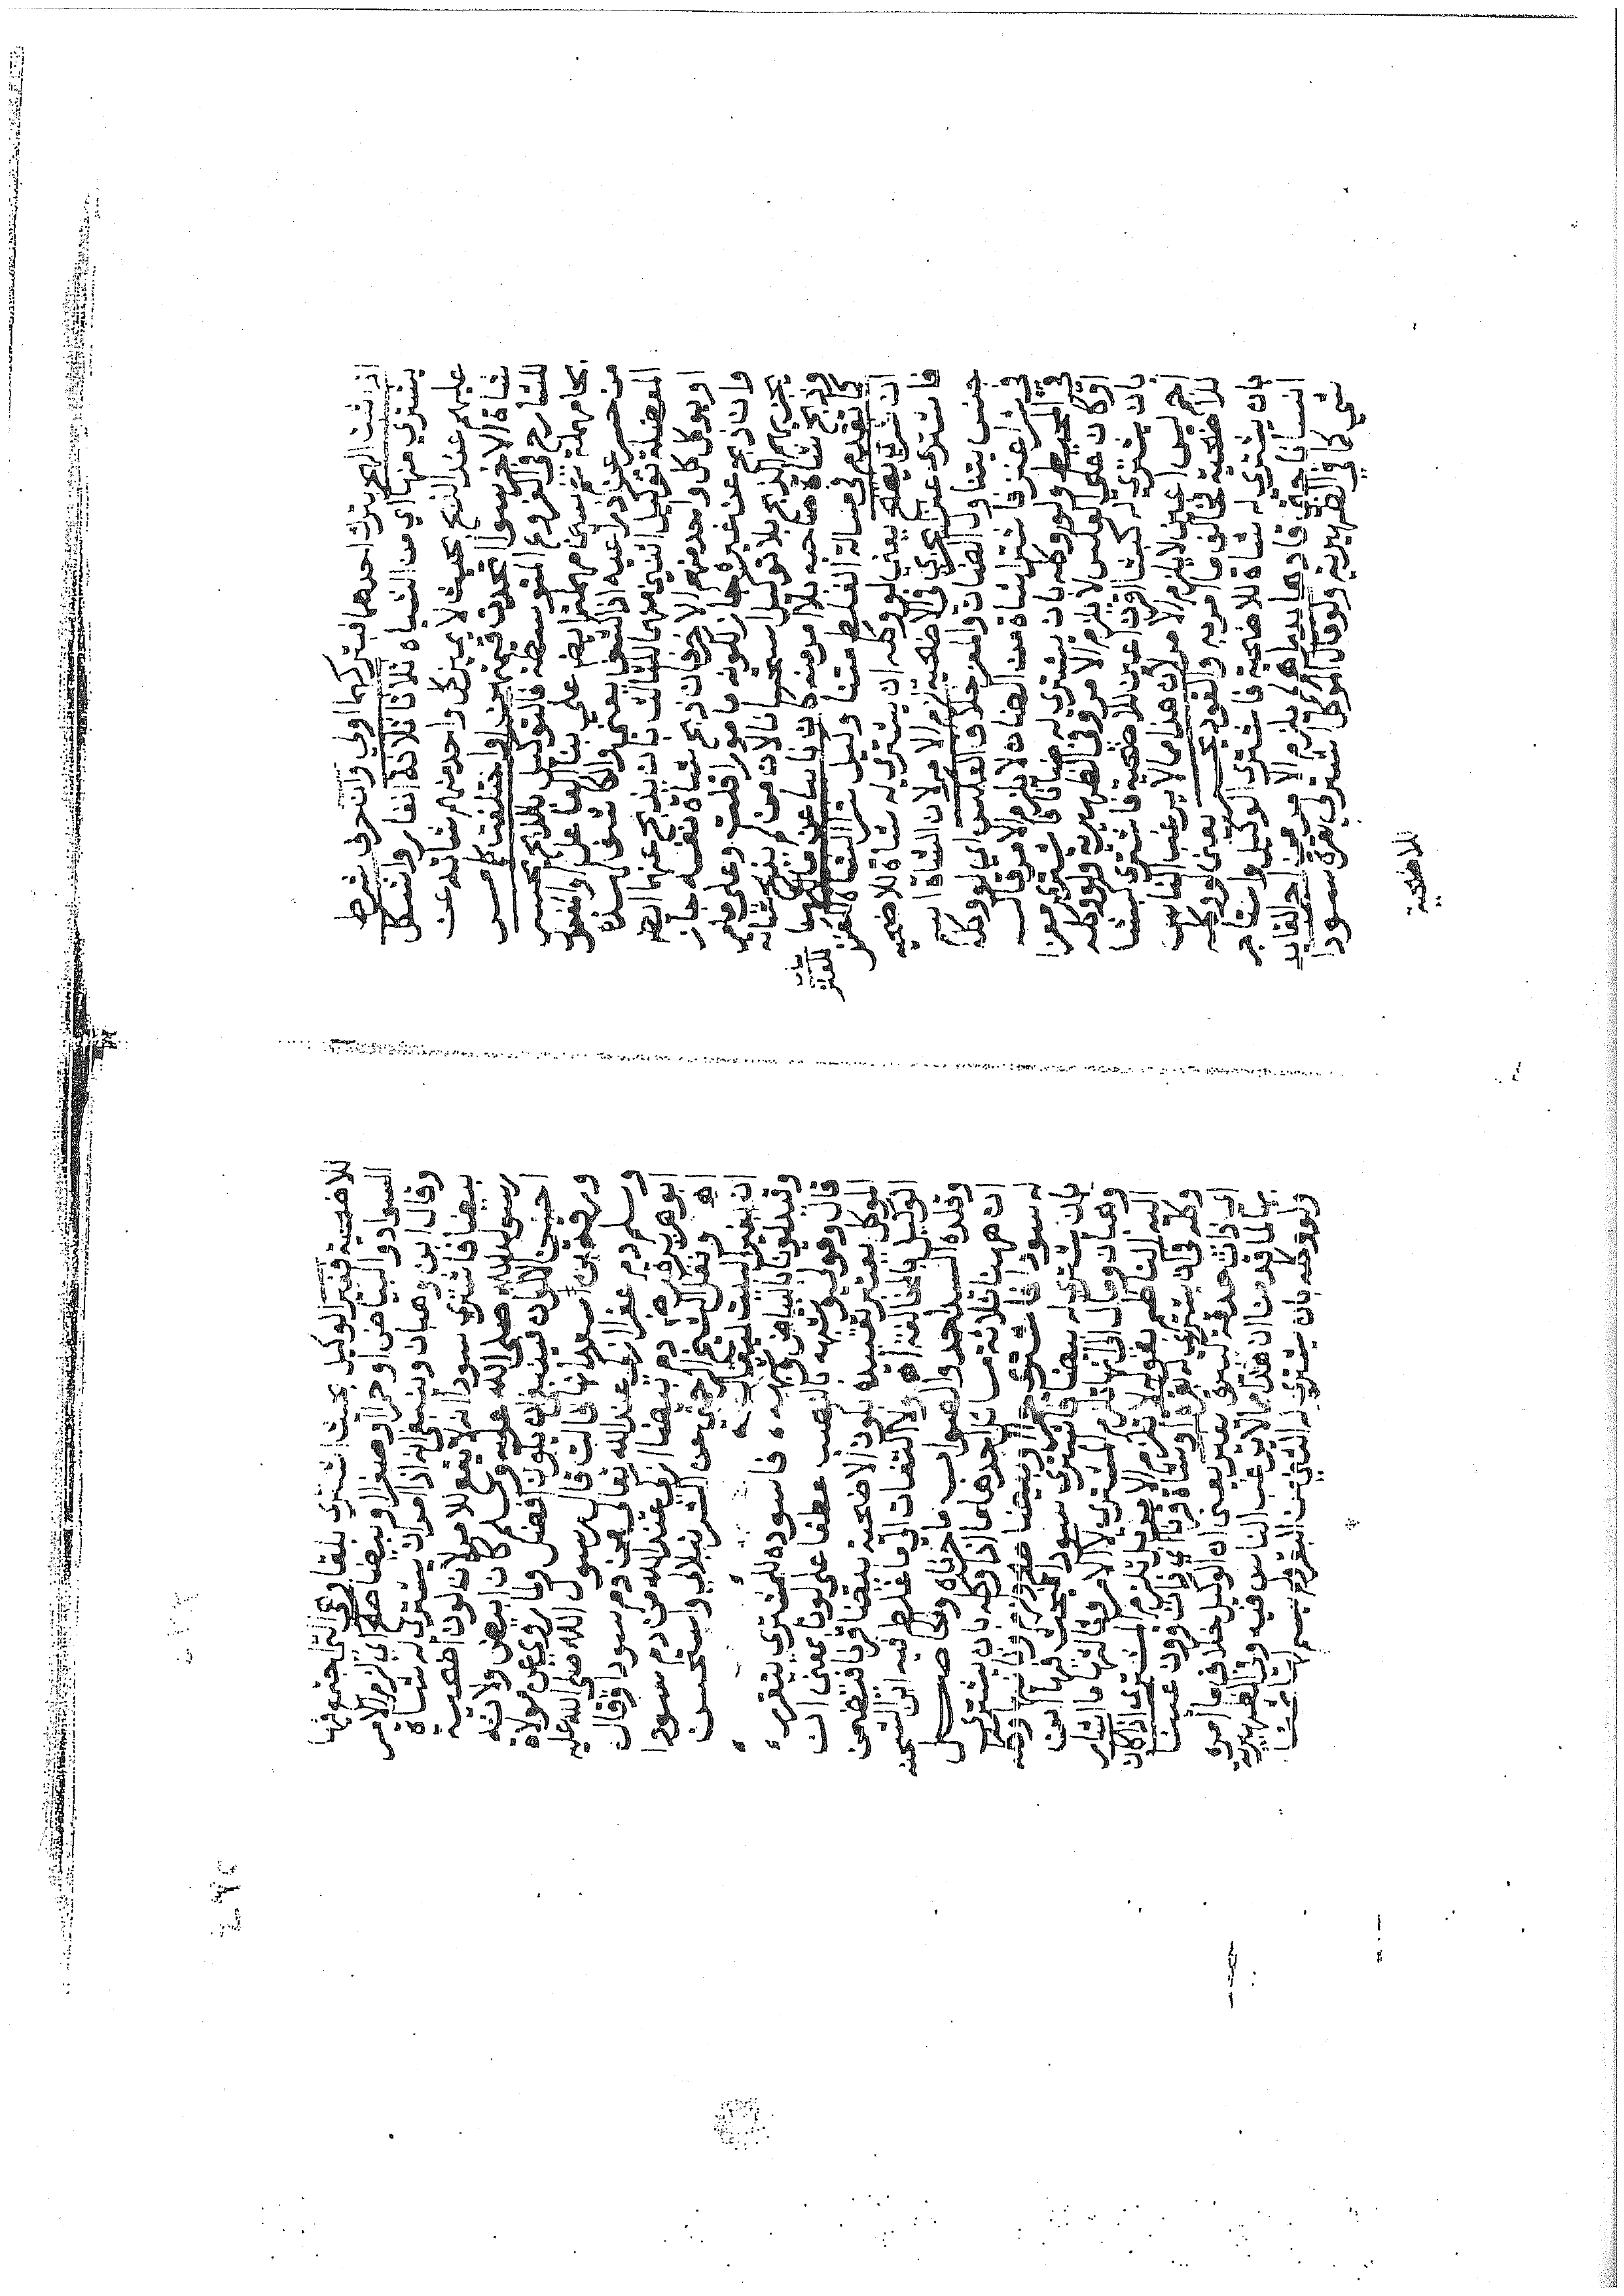 اذ ثبتا لم يترك احدهما بتركها اولي وان جرى شرط
يشتري منها اي من الشياه ثلاثا ثلاثة انفار واشكل
عليهم عند الذبح بحيث لا يميز كل واحد منهم شاته عن
شاة الاخر سوا اتحدت قيمتهن او اختلفت كما سر
للشارح في الفروع المتوسطة فالتوكيل بالذبح يحسر
بحا مهملة ثم سين مهملة ايضا علي بنا الفاعل او المفعول
من حسر عن ذراعيه اذا كشف يعني والكاشف لهذه
المعضلة توكيل اثنين منهما للثالث بان يذبح عنهما ايضا
او يوكل كل واحد منهم الاخر فان ذبح شاة نفسه جاز
وان ذبح عن غيره جاز لكونه مامورا قلت وعلي ما مر
يجزيهم الذبح بلا توكيل استحسانا لان من لم يذبح شاته
وذبح شاة صاحبه بلا امر منه كان ناسا عن مالكها
كما تقدم في مسالة الغلط متنا وليس شرا الشاة للعنز
ان شري يصح يعني لو وكله ان يشتري له شاة للاضحية
فاشترى عنزا يجزي في الاضحية لزم الامر لان الشاة اسم
جنس يتناول الضان والمعز خلاف العكس اي لو وكله
في شرا عنز فاشترا شاة من الضان لا يلزم الامر قال
في المحيط ولو وكله بان يشتري له ضانا فاشترى معزا
او كان علي العكس لا يلزم الامر وفي الظهيرية ولو وكله
بان يشتري له كبشا اقرن اعين للاضحية فاشترى كبشا
اجم ليس اعين لا يلزم الامر لان هذا ما لا يرغب الناس
للاضحية فخالف ما امر به والقود يحسر يعني لو وكله
بان يشتري له شاة للاضحية فاشترى الوكيل واستاجر
انسانا حتى قادها بدرهم لم يلزم الامر من اجر القايد
شي كما في الظهيرية ولو قال الموكل اشتر لي بقرة سودا
للاضحية
للاضحية فغير الوكيل بحيث اشترى بلقا وهي التي اجتمع فيها
السواد والبياض او حمرا او صفرا او بيضا صح اي لزم الامر
وقال ابن وهبان وينبغي انه اذا امره ان يشتري له شاة
بيضا فاشترى سودا انه لا يقع للامر لان لون اضحية
رسول الله صلى الله عليه وسلم كان ابيض ولانه
احسن الالوان فينبغي ان يكون افضل ولما روي عن مولاة
ورقة بن سعد انها قالت قال رسول الله صلى الله عليه
وسلم دم عفرا ازكى عند الله تعالى من دم سودا وقال
ابو هريرة رضه دم بيضا ازكى عند الله من دم سودا
اه ونقل الشيخ الرحيمي عن الشرنبلالي واستحسن
ان يغير البيت ليقال
وتقييد لونا بالبياض وكبره ، فاسوده للمشتري يتقرر
قال وهو لونه بالنصب عطفا على لونا يعني ان
الموكل يعتبر تقييده بلون الاضحية بيضا قرنا فتضمن
الوكيل بالمخالفة اه ولا التفات الى ما غلط فيه ابن الشحنة
وقلده السيد احمد والصواب ما قلناه والحاصل
ان ههنا ثلاثة مسائل احدها ما اذا وكله بان يشتري
له سودا فاشترى حمرا او بيضا صح ولزم وثانيها وكله
بان يشتري له بيضا فاشترى سودا بحث فيها ابن
وهبان وقال انها تلزم المشتري لا الامر وثالثها ما اشار
اليه الناظم بقوله لا تلزم الامر بل تلزم المشتري اذا كان
وكله في ان يشتري له بقرة او شاة قرنا عينا دون عينا
اي ذات حدقة ليس تغيير يعني ان الوكيل خالف ما امر
به لما قدمنا ان هذا مما لا يرغب الناس فيه وفي الظهيرية
ولو وكله بان يشتري له الثني من البقر لم يسم لها ثمنا